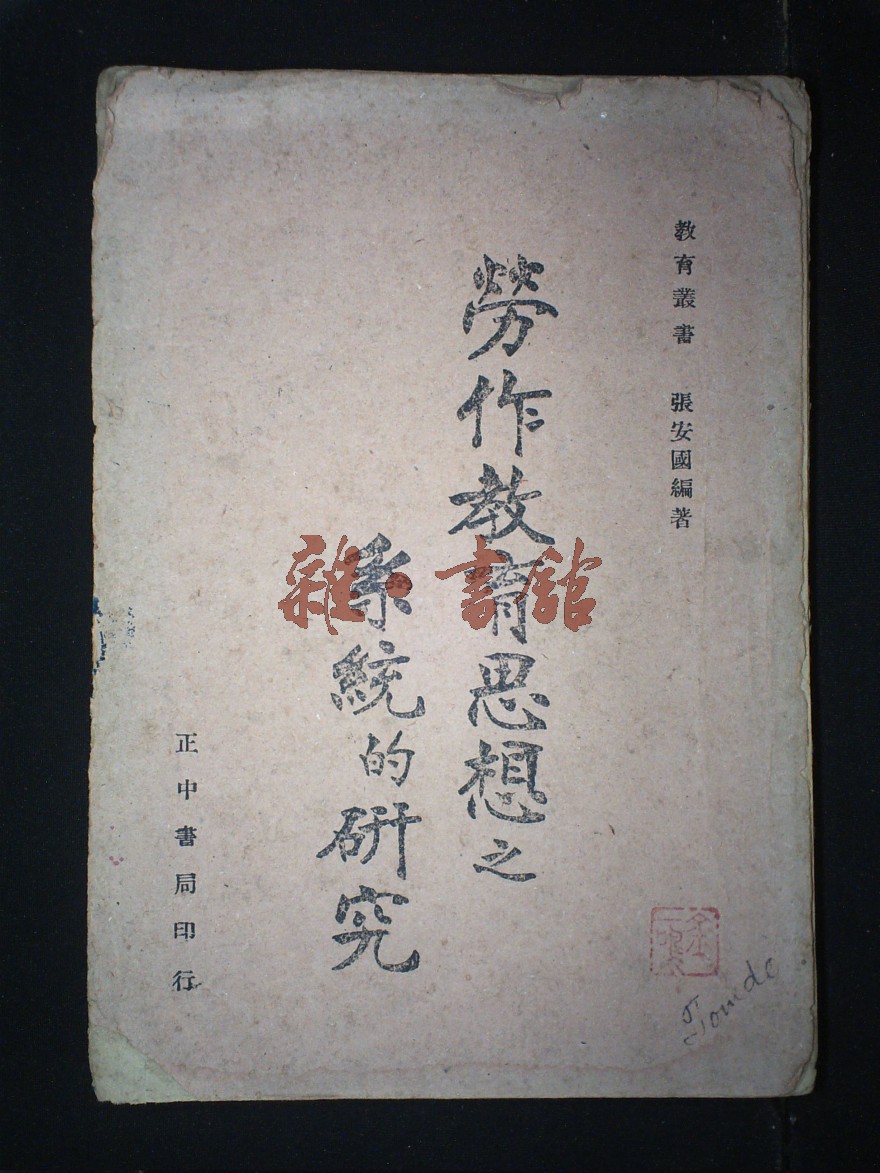 教育叢書 張安國編著
勞作教育思想之
系統的研究
正中書局印行
雜·書館